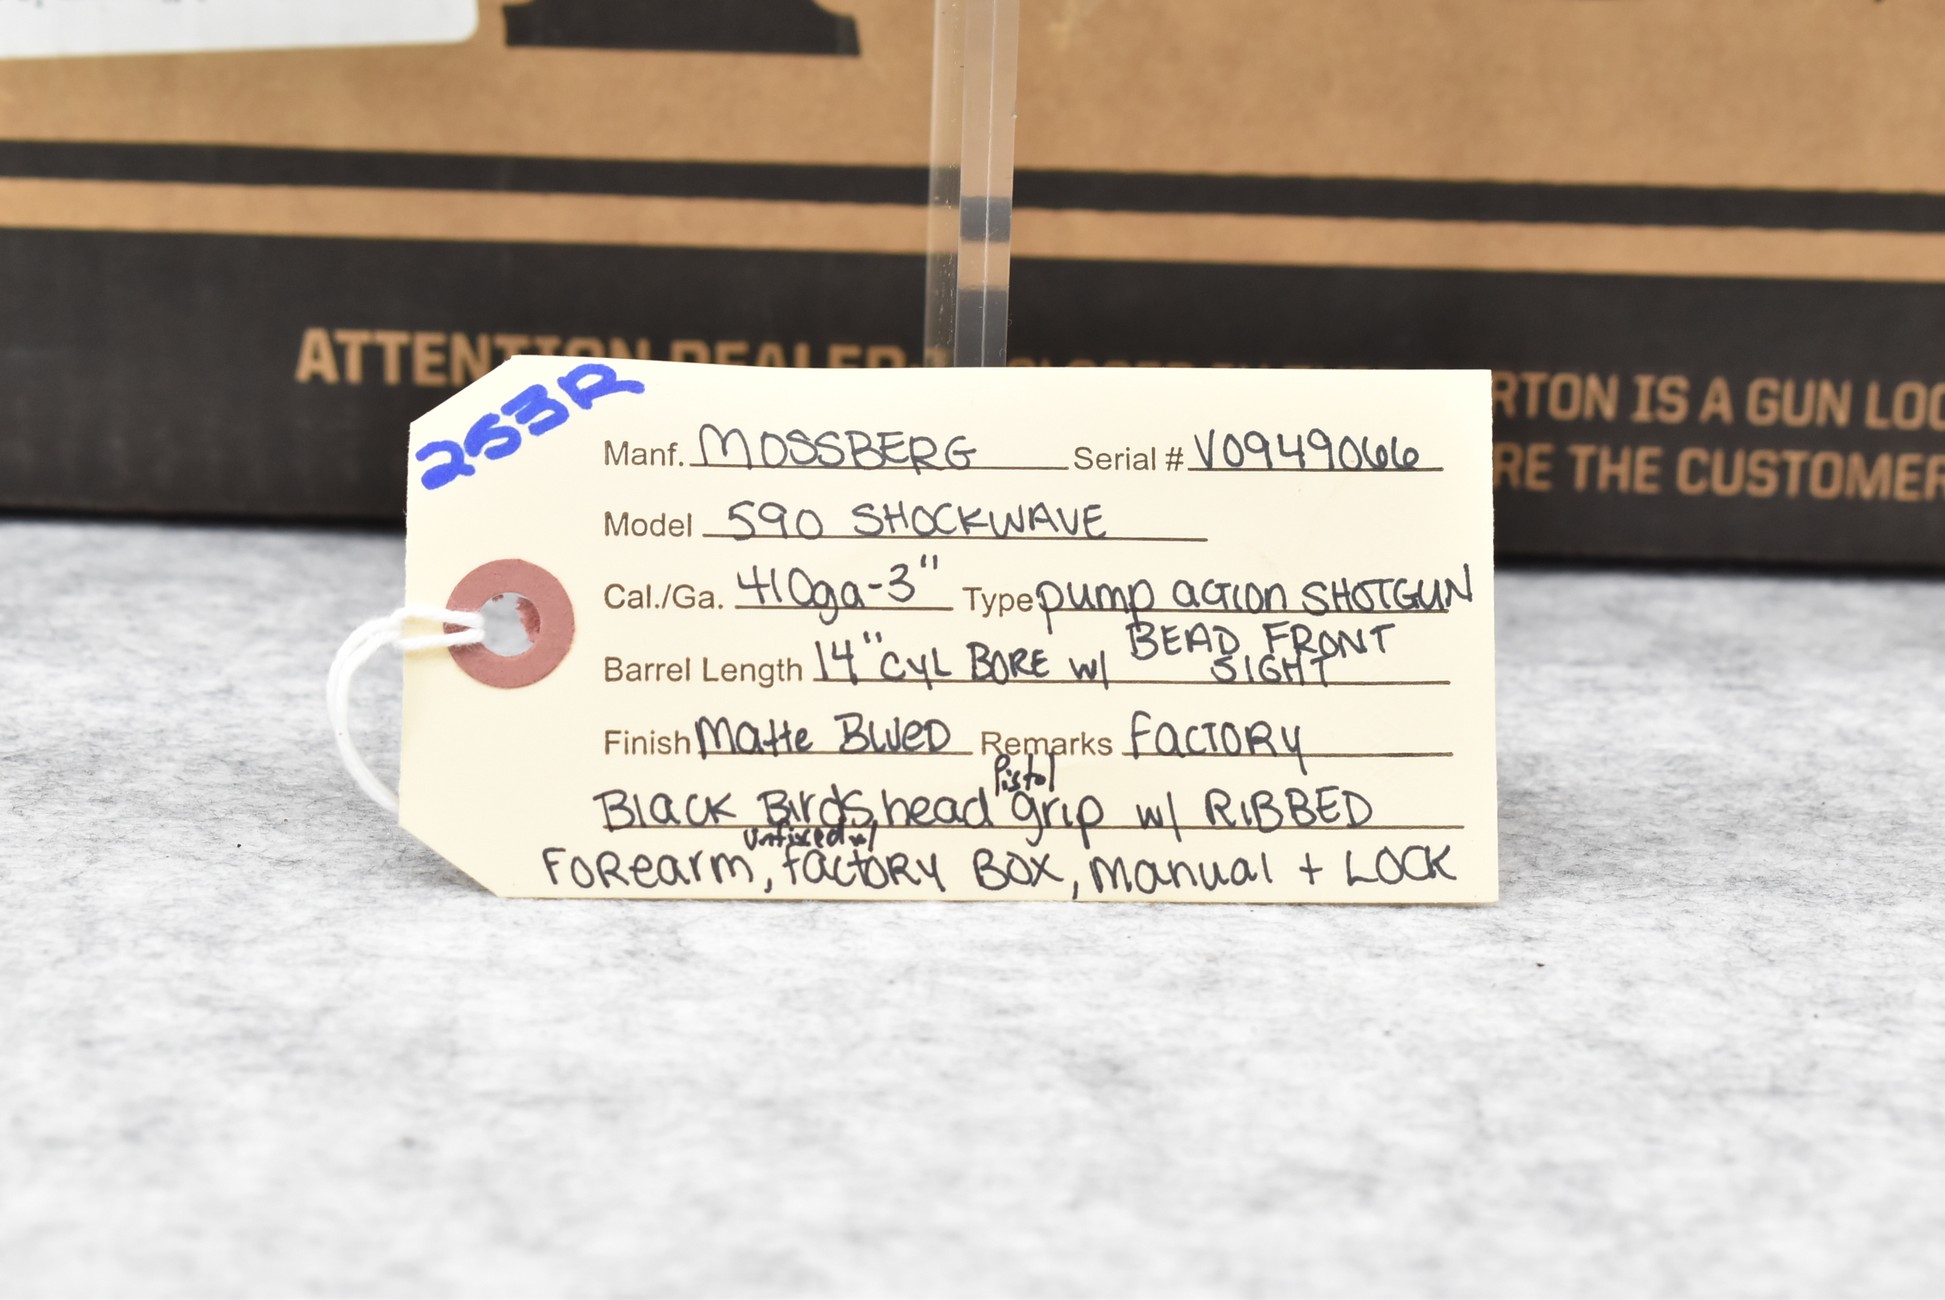 ATTENTION DEALER
RTON IS A GUN LOC
RE THE CUSTOMER
253R
Manf. MOSSBERG Serial # V0949066
Model 590 SHOCKWAVE
Cal./Ga. 410ga-3" Type pump action SHOTGUN
Barrel Length 14" CYL BORE w/ BEAD FRONT SIGHT
Finish Matte Blued Remarks Factory
Black Birdshead Pistol grip w/ RIBBED
Forearm, unfixed w/ factory Box, Manual + LOCK